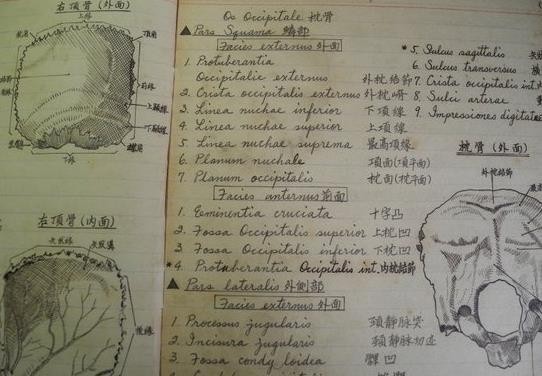 右頂骨 (外面)
上緣
前緣
上顳線
下顳線
下緣
右頂骨 (内面)
矢狀緣
Os Occipitale 枕骨
▲ Pars Squama 鱗部
Facies externus 外面
1. Protuberantia
Occipitalie externus 外枕結節
2. Crista occipitalis externus 外枕嵴
3. Linea nuchae inferior 下項線
4. Linea nuchae superior 上項線
5. Linea nuchae suprema 最高項線
6. Planum nuchale 項面(項平面)
7. Planum occipitalis 枕面(枕平面)
Facies internus前面
1. Eminentia cruciata 十字凸
2. Fossa Occipitalis superior 上枕凹
3. Fossa Occipitalis inferior 下枕凹
*4 Protuberantia Occipitalis int. 内枕結節
▲ Pars lateralis 外側部
Facies externus 外面
1. Processus jugularis 頚静脉突
2. Incisura jugularis 頚静脉切迹
3. Fossa condyloidea 髁凹
*5. Sulcus sagittalis
6. Sulcus transversus
7. Crista occipitalis int.
8. Sulci arterae
9. Impressiones digitatae
枕骨 (外面)
外枕結節